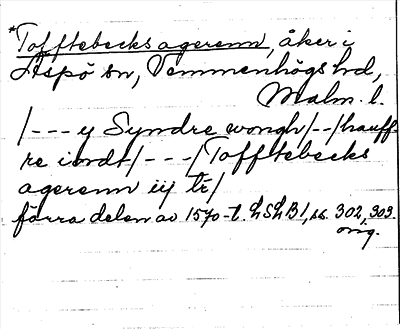 *Tofftebecks agerenn, åker i
Äspö sn, Vemmenhögs hd,
Malm. l.
/--- y Syndre wongh/--/hauff-
re indt/---/Tofftebecks
agerenn iij tr/
förra delen av 1570-t. LSLB1, ss. 302, 303.
orig.